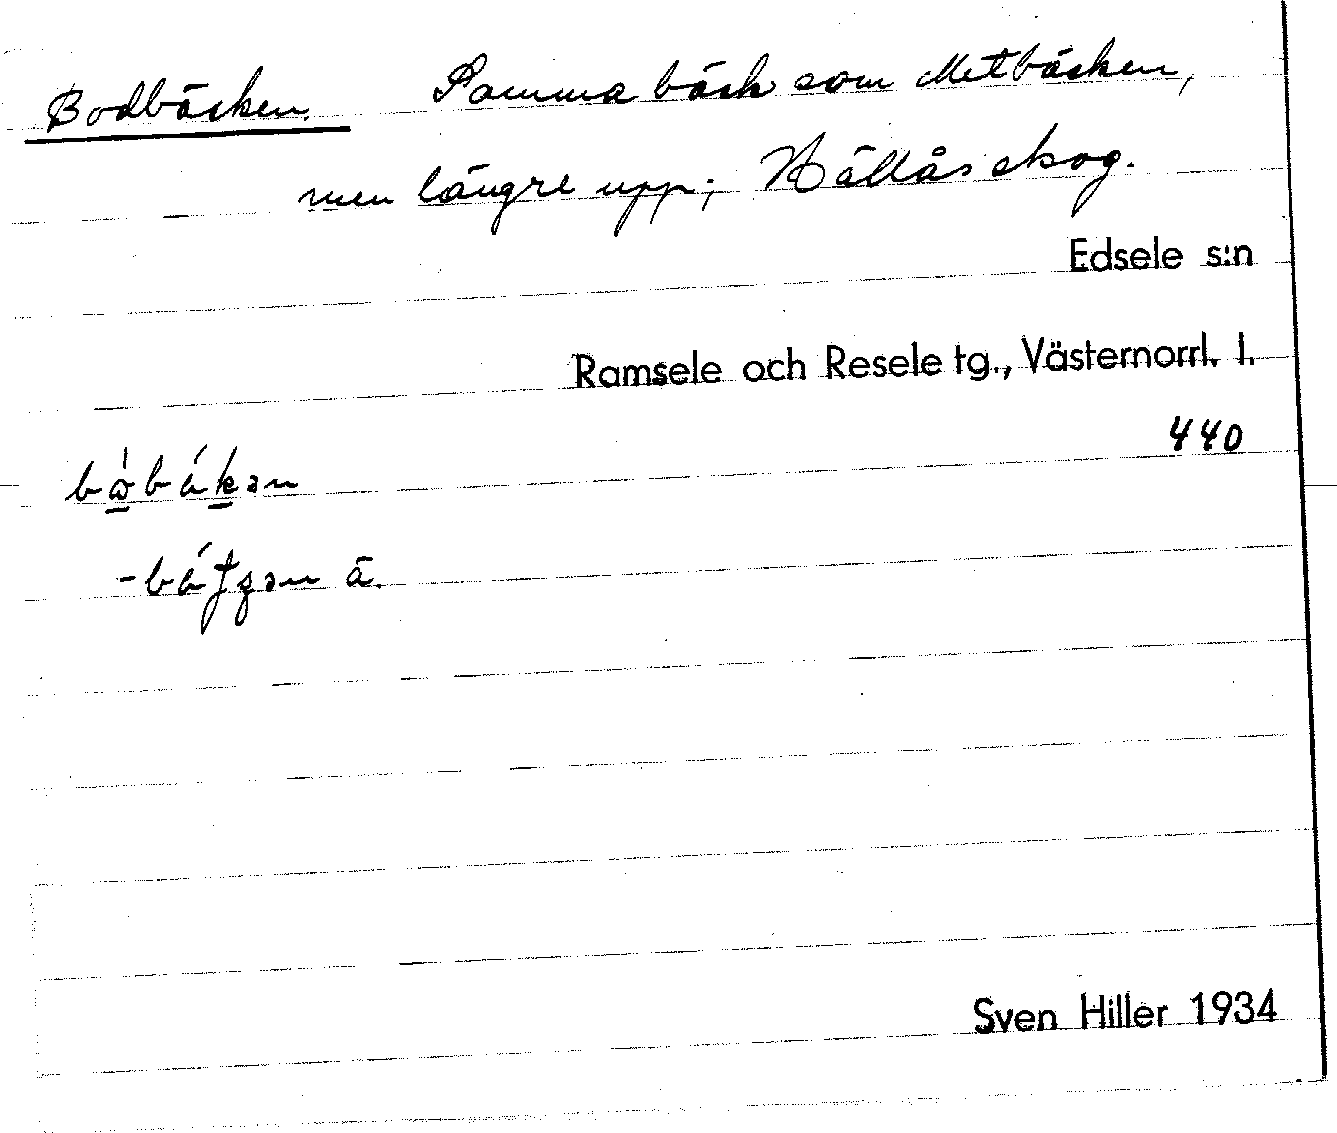 Bodbäcken. Samma bäck som Metbäcken,
men längre upp; Hällås skog.
Edsele s:n
Ramsele och Resele tg., Västernorrl. l.
440
Sven Hiller 1934